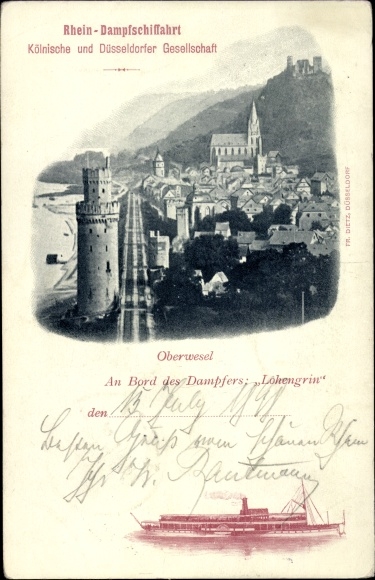 Rhein-Dampfschiffahrt
Kölnische und Düsseldorfer Gesellschaft
FR. DIETZ, DÜSSELDORF
Oberwesel
An Bord des Dampfers: „Lohengrin"
den 15 July
Besten Gruß vom schönen Rhein